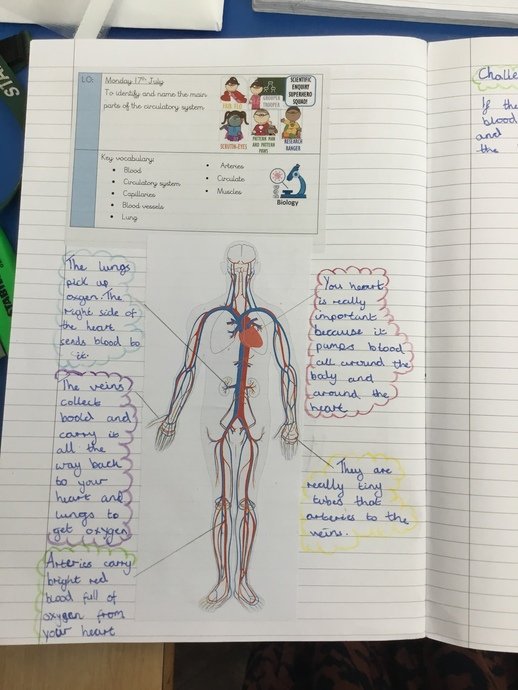 LO:
Monday 17th July
To identify and name the main
parts of the circulatory system
SCIENTIFIC
ENQUIRY
SUPERHERO
SQUAD!
GROUPER
TROOPER
SCRUTIN-EYES
PATTERN PAN
AND PATTERN
PAWS
RESEARCH
RANGER
Key vocabulary:
Blood
Circulatory system
Capillaries
Blood vessels
Lung
Arteries
Circulate
Muscles
Biology
The lungs
pick up
oxgen. The
right side of
the heart
sends blood to
it.
The veins
collects
boold and
carry it
all the
way back
to your
heart and
lungs to
get oxygen
Arteries carry
bright red
blood full of
oxygen from
your heart
You heart
is really
important
because it
pumps blood
all around the
body and
around the
heart
They are
really tiny
tubes that
arteries to the
veins.
Challe
If the
blood
and
the